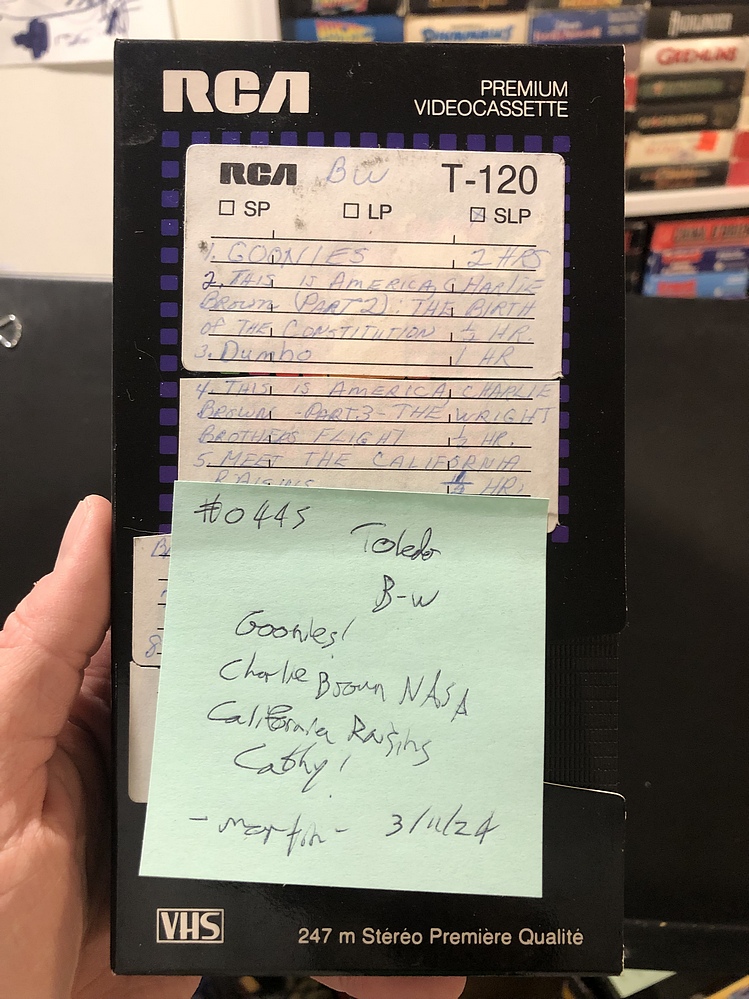 GREMLINS
RCA
PREMIUM
VIDEOCASSETTE
RCA BW T-120
SP LP SLP
1. GOONIES 2 HRS
2. THIS IS AMERICA, CHARLIE
BROWN (PART 2): THE BIRTH
of THE CONSTITUTION ½ HR.
3. Dumbo 1 HR
4. THIS IS AMERICA, CHARLIE
BROWN -PART 3- THE WRIGHT
BROTHERS FLIGHT ½ HR.
5. MEET THE CALIFORNIA
RAISINS ½ HR.
8
#0445
Toledo
B-W
Goonies!
Charlie Brown NASA
California Raisins
Cathy!
-martin- 3/11/24
VHS
247 m Stéréo Première Qualité